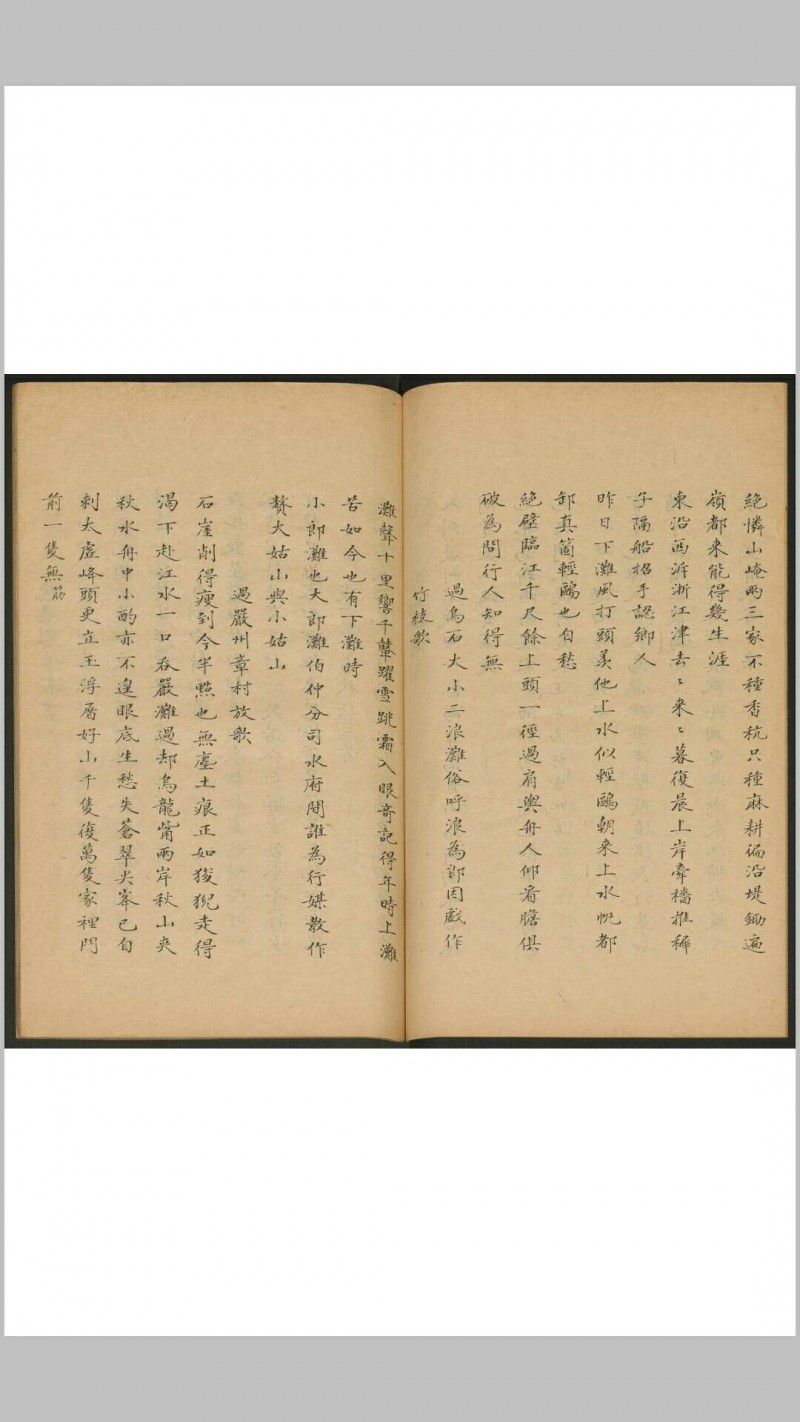 絶憐山崦兩三家不種香秔只種麻耕徧沿堤鋤遍
嶺都来能得幾生涯
東沿西泝浙江津去〻来〻暮復晨上岸牽檣推稱
子隔船招手認鄉人
昨日下灘風打頭羡他上水似輕鷗朝来上水帆都
卸真箇輕鷗也自愁
絶壁臨江千尺餘上頭一徑過肩輿舟人仰看膽俱
破為問行人知得無
過烏石大小二浪灘俗呼浪為郎因戲作
竹枝歌
灘聲十里響千鼙躍雪跳霜入眼奇記得年時上灘
苦如今也有下灘時
小郎灘也大郎灘伯仲分司水府間誰為行媒教作
贅大姑山與小姑山
過嚴州章村放歌
石崖削得瘦到今半㸃也無塵土痕正如狻猊走得
渴下赴江水一口吞嚴灘過却烏龍觜兩岸秋山夾
秋水舟中小酌亦不遑眼底生愁失蒼翠尖峯已自
刺太虛峰頭更立玉浮屠好山千隻復萬隻家裡門
前一隻無